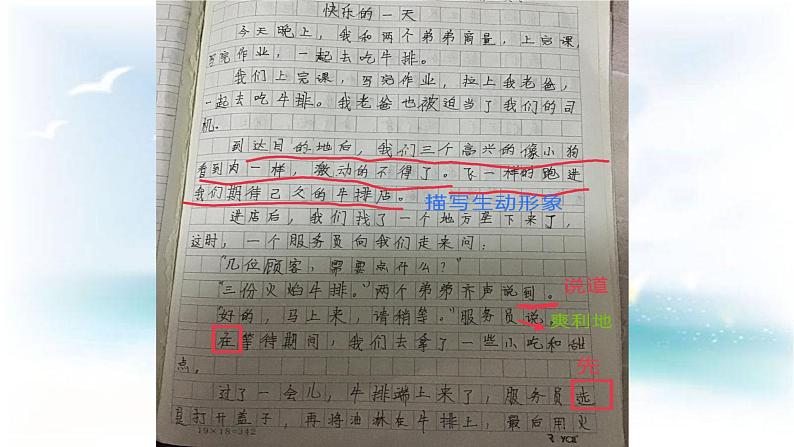 快乐的一天
今天晚上,我和两个弟弟商量,上完课,
写完作业,一起去吃牛排。
我们上完课,写完作业,拉上我老爸,
一起去吃牛排。我老爸也被迫当了我们的司
机。
到达目的地后,我们三个高兴的像小狗
看到肉一样,激动的不得了。飞一样的跑进
我们期待己久的牛排店。
描写生动形象
进店后,我们找了一个地方坐下来了,
这时,一个服务员向我们走来问:
“几位顾客,需要点什么?”
“三份火焰牛排。”两个弟弟齐声说到。
说道
“好的,马上来,请稍等。”服务员说。
爽利地
在等待期间,我们去拿了一些小吃和甜
点。
先
过了一会儿,牛排端上来了,服务员选
是打开盖子,再将油淋在牛排上,最后用火
19×18=342